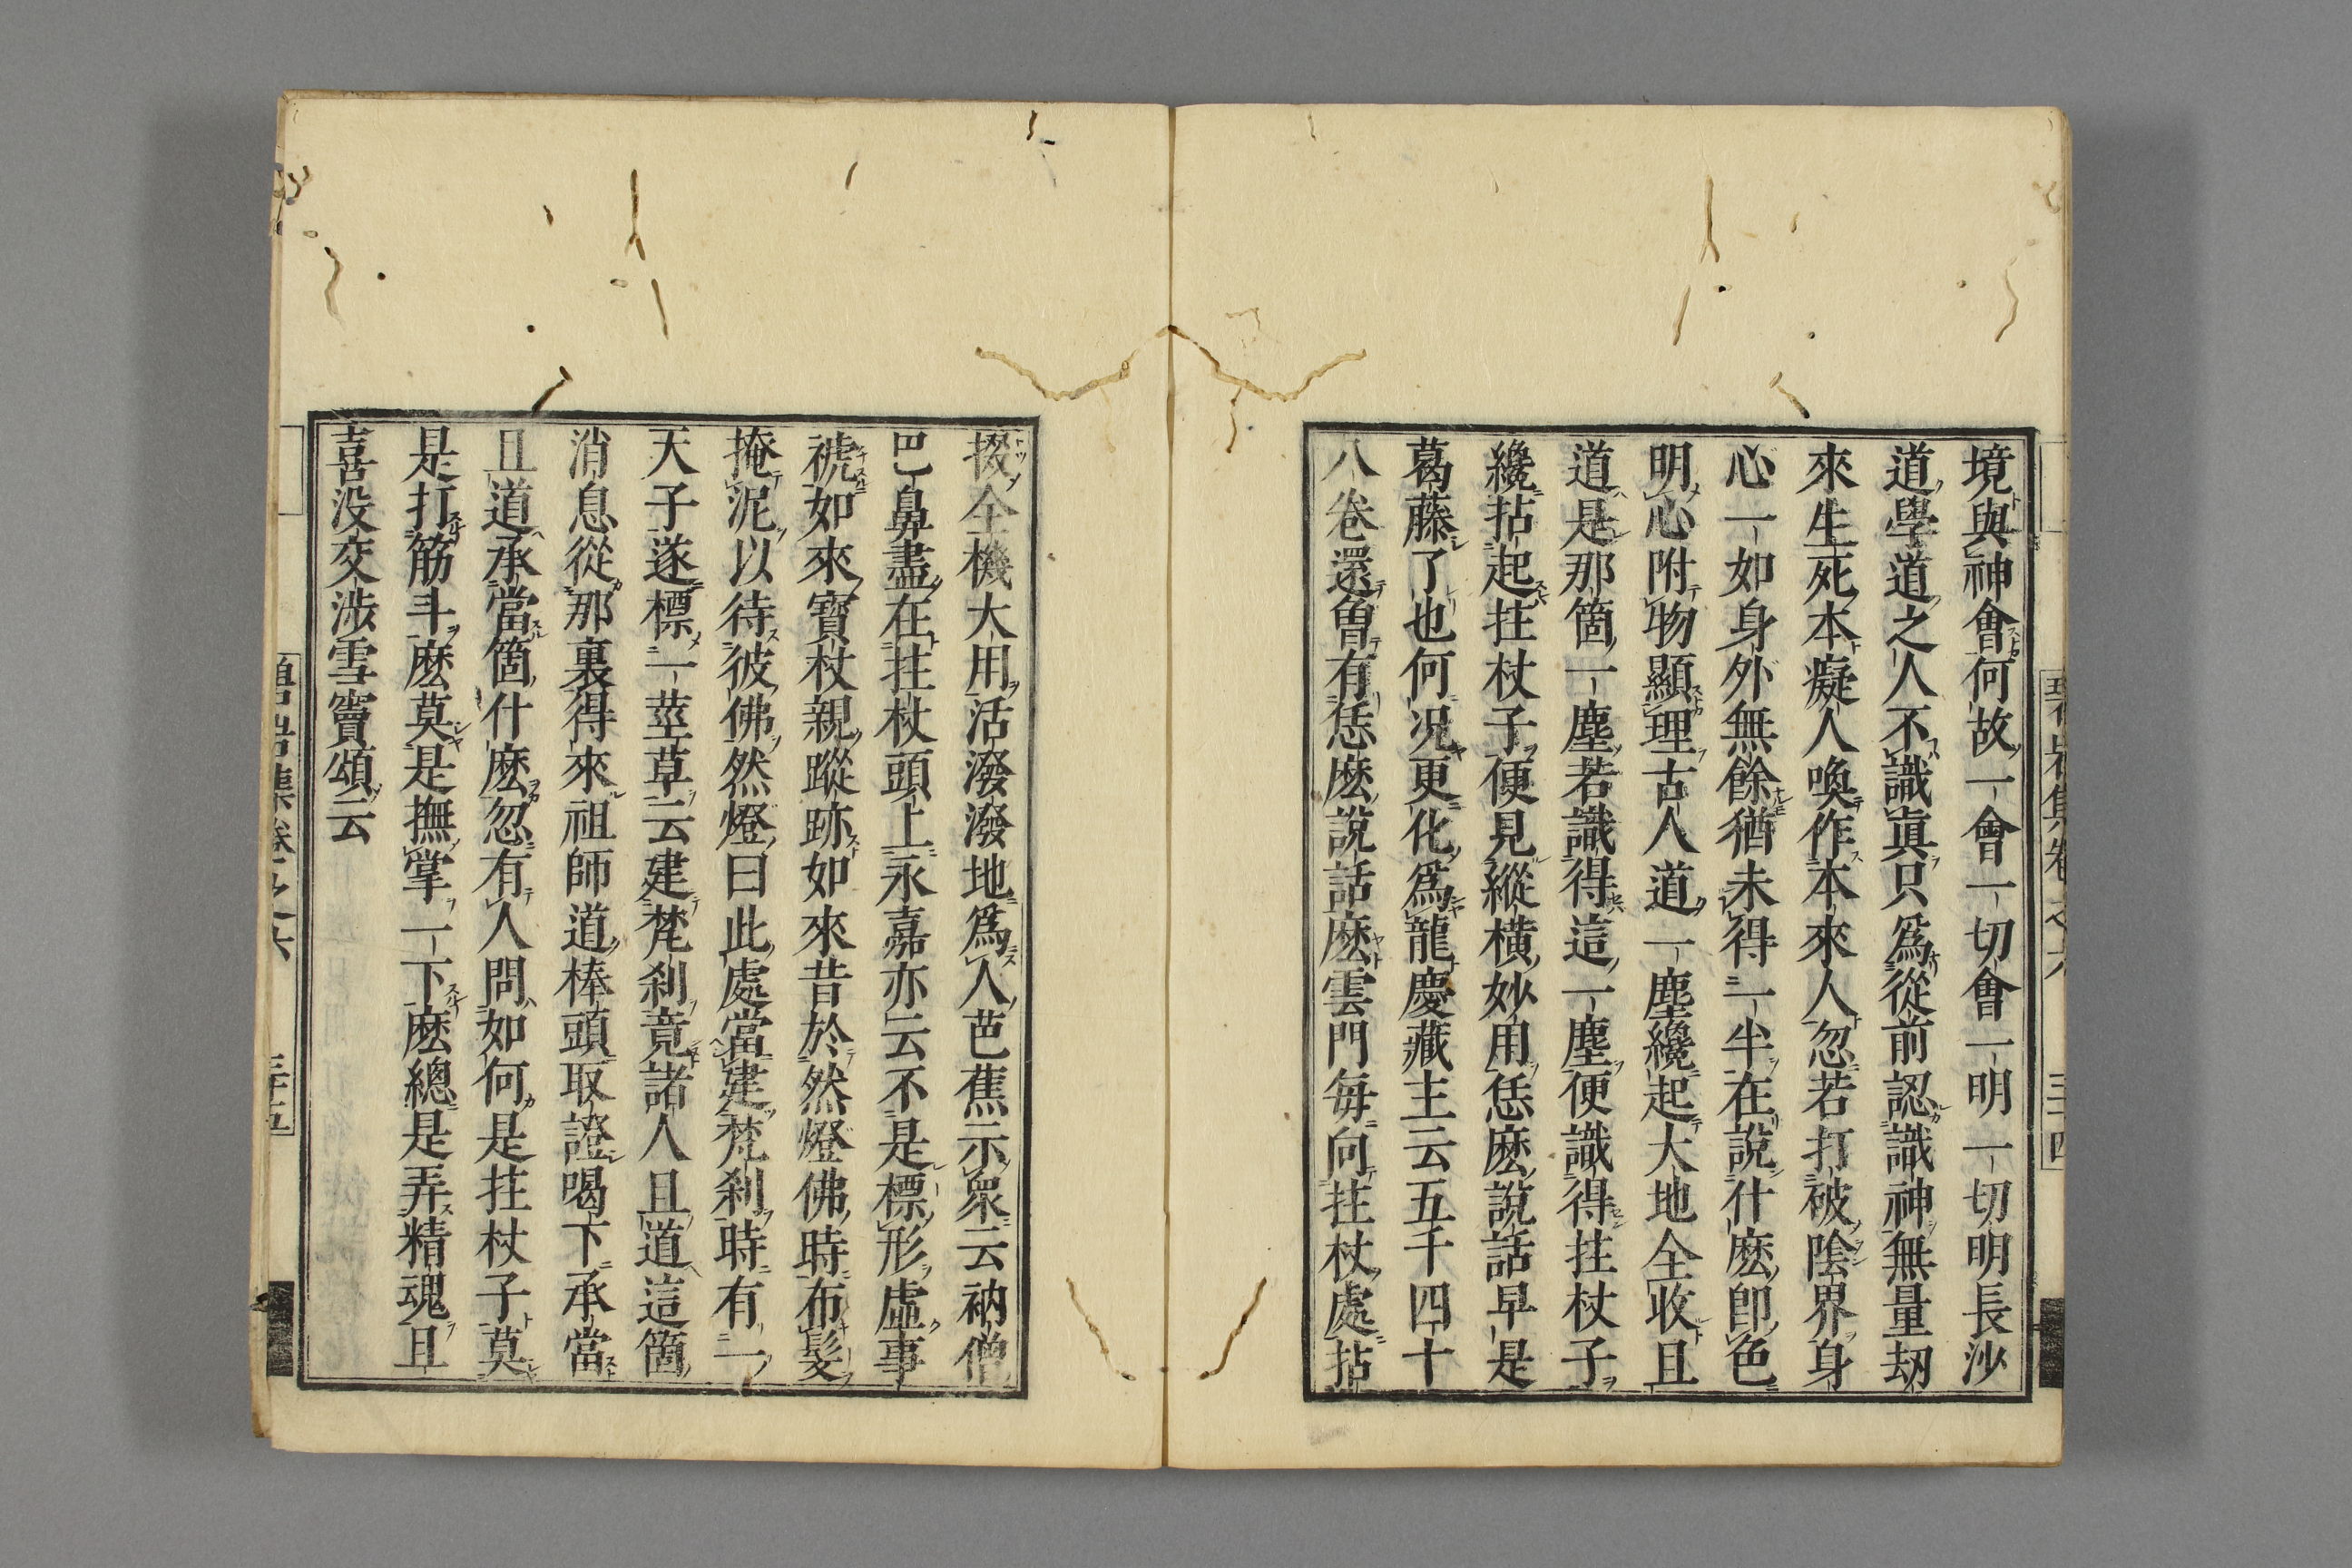 境與神會何故一會一切會一明一切明長沙
道學道之人不識眞只爲從前認識神無量劫
來生死本癡人喚作本來人忽若打破陰界身
心一如身外無餘猶未得一半在說什麽卽色
明心附物顯理古人道一塵纔起大地全收且
道是那箇一塵若識得這一塵便識得拄杖子
纔拈起拄杖子便見縱橫妙用恁麽說話早是
葛藤了也何况更化爲龍慶藏主云五千四十
八卷還曾有恁麽說話麽雲門每向拄杖處拈
掇全機大用活潑潑地爲人芭蕉示衆云衲僧
巴鼻盡在拄杖頭上永嘉亦云不是標形虛事
褫如來寶杖親蹤跡如來昔於然燈佛時布髮
掩泥以待彼佛然燈曰此處當建梵刹時有一
天子遂標一莖草云建梵刹竟諸人且道這箇
消息從那裏得來祖師道棒頭取證喝下承當
且道承當箇什麽忽有人問如何是拄杖子莫
是打筋斗麽莫是撫掌一下麽總是弄精魂且
喜没交涉雪竇頌云